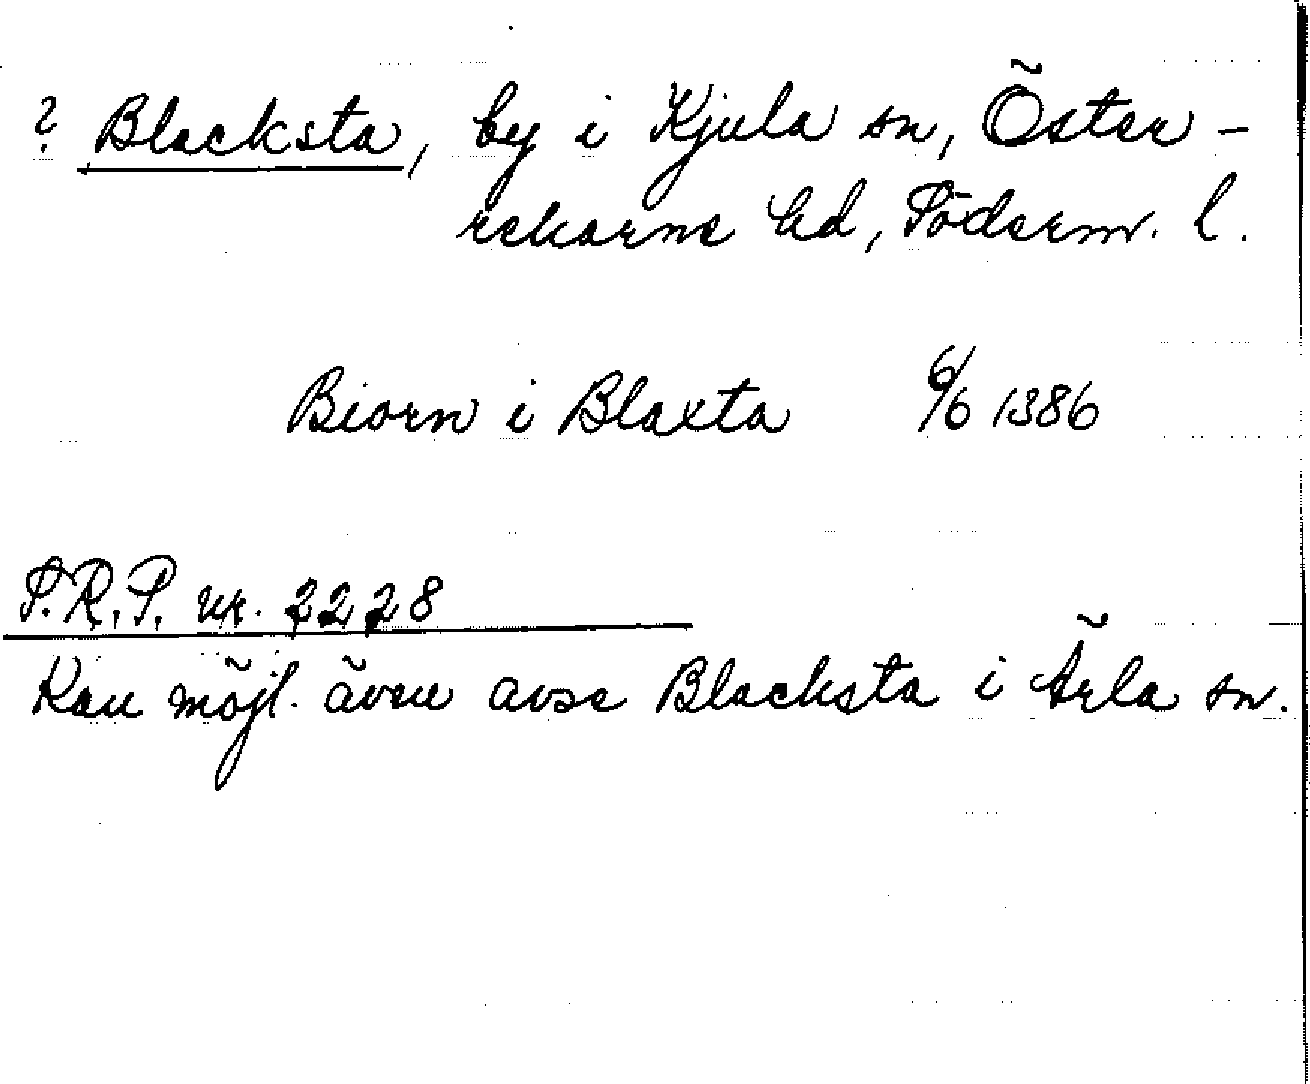 ? Blacksta, by i Kjula sn, Öster-
rekarne hd, Söderm. l.
Biorn i Blaxta 6/6 1386
S.R.P. nr. 2228
Kan möjl. även avse Blacksta i Ärla sn.